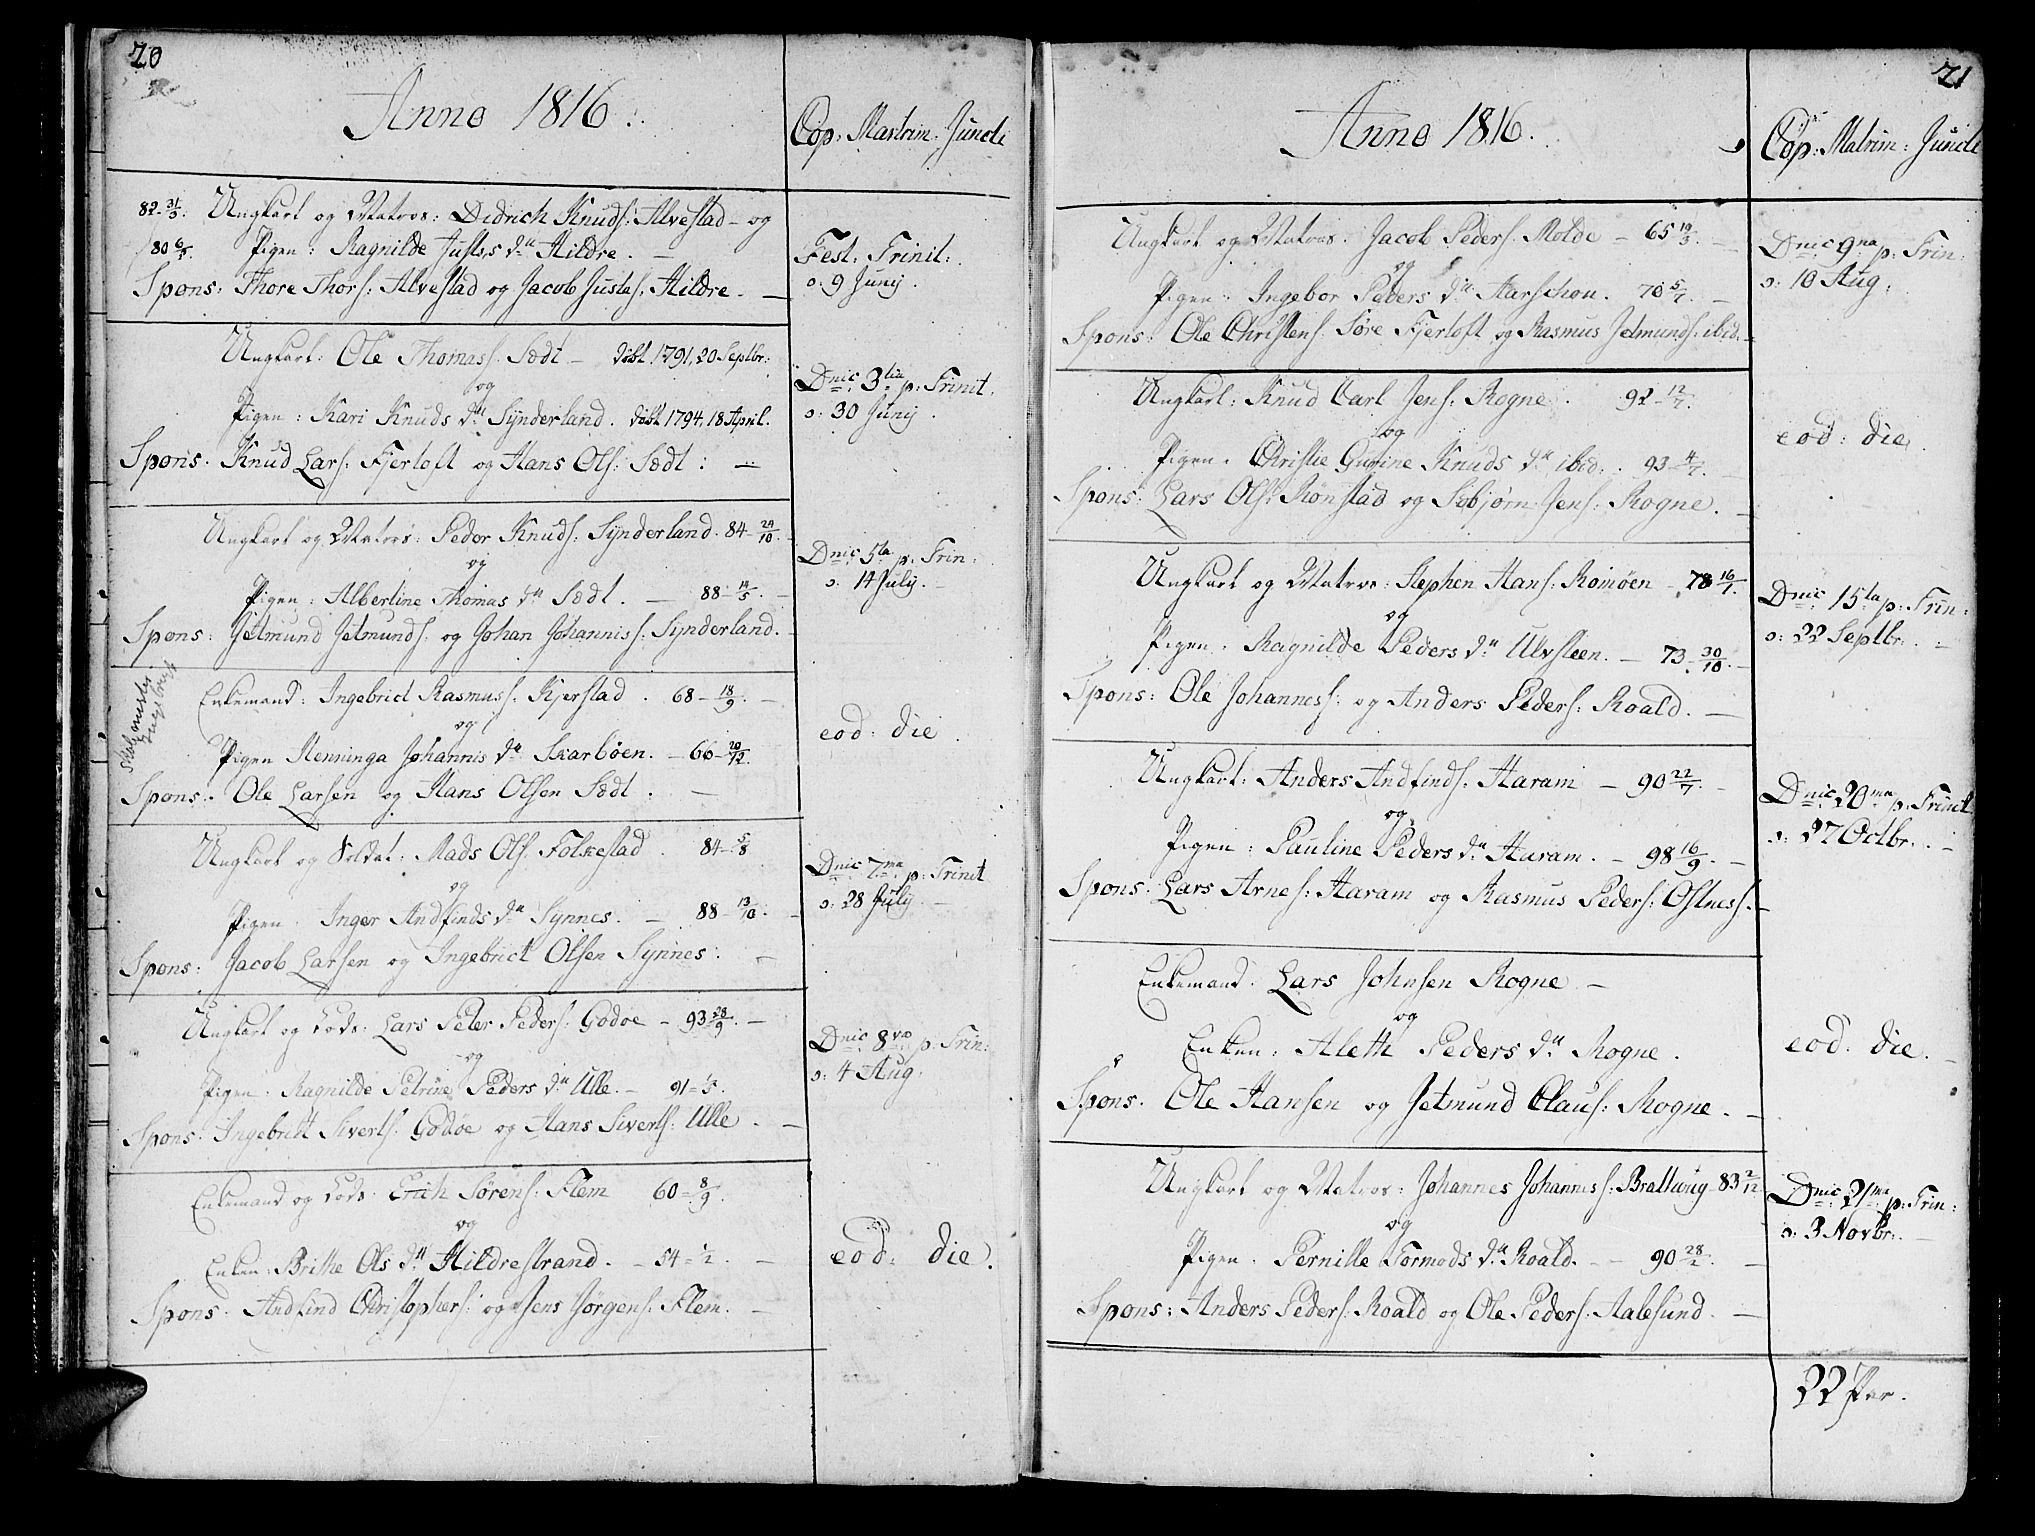 20
Anno 1816.
Cop: Mastrim: Juncti
82-31/3. Ungkarl og Matros: Didrich Knuds: Alvestad - og
/80 6/5 Pigen: Ragnilde Justes dr Hildre. -
Spons: Thore Thors: Alvestad og Jacob Justas: Hildre. -
Fest: Trinit:
o: 9 Junij.
Ungkarl: Ole Thomass: Sædt - döbt 1791, 20 Septbr:
og
Pigen: Kari Knuds dr Synderland. döbt 1794, 18 April.
Spons: Knud Lars: Fjertoft og Hans Ols: Sædt: -
Dnic: 3tia p: Trinit.
o: 30 Junij.
Ungkarl og Matros: Peder Knuds: Synderland. 84-24/10.
og
Pigen: Albertine Thomas dr Sædt. - 88-14/5. -
Spons: Jetmund Jetmunds: og Johan Johanniss: Synderland.
Dnic: 5ta p: Trin:
o: 14 July. -
Skolemester Ingebrigt
Enkemand: Ingebrict Rasmuss: Kjerstad. 68-18/9. -
og
Pigen Henninga Johannis dr Skarbøen. - 66-20/12.
Spons: Ole Larsen og Hans Olsen Sædt: -
eod: die.
Ungkarl og Soldat: Mads Ols: Folkestad. 84-5/8
og
Pigen: Inger Andfinds dr Synnes. - 88-13/10. -
Spons: Jacob Larsen og Ingebrict Olsen Synnes: -
Dnic: 7ma p: Trinit
o: 28 July. -
Ungkarl og Lods: Lars Peter Peders: Godøe - 93-28/9. -
og
Pigen: Ragnilde Petrine Peders dr Ulle. - 91-1/5.
Spons: Ingebritt Siverts: Godøe og Hans Siverts: Ulle. -
Dnic: 8va p: Trin:
o: 4 Aug.
Enkemand og Lods: Erich Sørens: Flem 60-8/9.
og
Enken: Brithe Ols dr Hildrestrand. - 54-1/2. -
Spons: Andfind Christophers: og Jens Jørgens: Flem. -
eod: die.
21
Anno 1816.
Cop: Matrim: Juncti
Ungkarl og Matros: Jacob Peders: Molde - 65 19/3. -
og
Pigen: Ingebor Peders dr Aarschou. 70 5/7. -
Spons: Ole Christens: Søre Fjertoft og Rasmus Jetmunds: ibid: -
Dnic: 9na p: Trin:
o: 10 Aug:
Ungkarl: Knud Carl Jens: Rogne. 92-12/7.
og
Pigen: Christie Gurine Knuds dr ibid: 93-4/7. -
Spons: Lars Ols: Rönstad og Sæbjørn Jens: Rogne. -
eod: die.
Ungkarl og Matros: Stephen Hans: Roimøen - 78 16/1.
og
Pigen: Ragnilde Peders dr Ulvsteen. - 73-30/10. -
Spons: Ole Johanness: og Anders Peders: Roald. -
Dnic: 15ta p: Trin:
o: 22 Septbr: -
Ungkarl: Anders Andfinds: Haram - 90 22/7. -
og
Pigen: Pauline Peders dr Haram. - 98 16/9. -
Spons: Lars Arnes: Haram og Rasmus Peders: Ostness. -
Dnic: 20ma p: Trinit
o: 27 Octbr: -
Enkemand: Lars Johnsen Rogne -
og
Enken: Aleth Peders dr Rogne.
Spons: Ole Hansen og Jetmund Claus: Rogne. -
eod: die. -
Ungkarl og Matros: Johannes Johanniss: Brattwrig - 83 2/12
og
Pigen: Pernille Tormods dr Roald. - 90 28/2. -
Spons: Anders Peders: Roald og Ole Peders: Aalesund. -
Dnic: 21ma p: Trin:
o: 3 Novbr: -
22 Par.